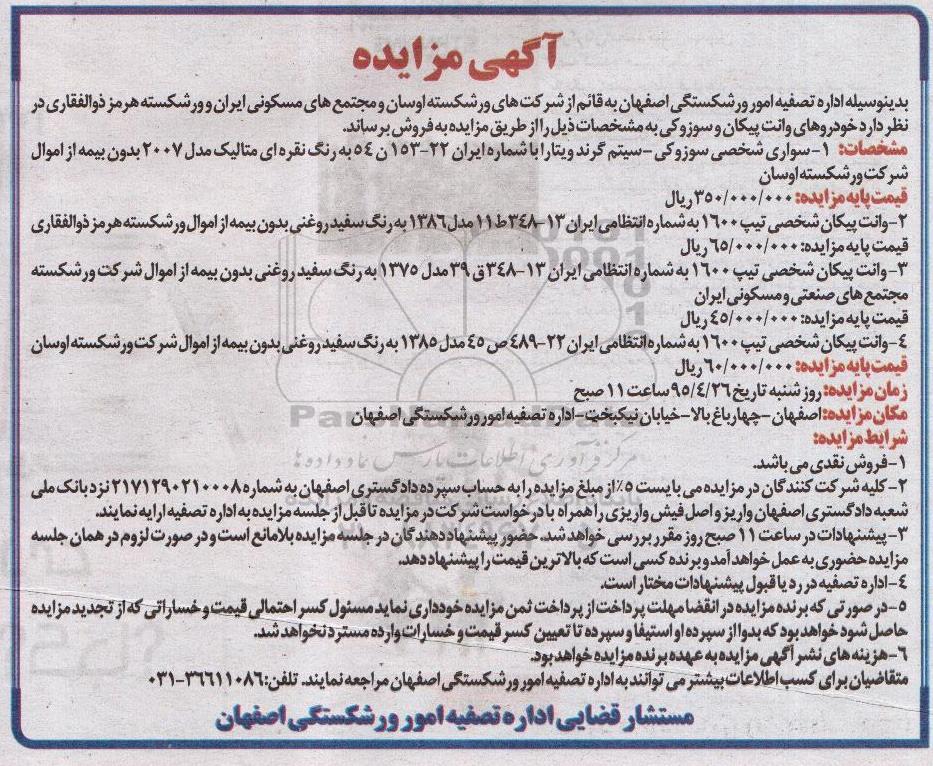 آگهی مزایده
بدینوسیله اداره تصفیه امور ورشکستگی اصفهان به قائم از شرکت های ورشکسته اوسان و مجتمع های مسکونی ایران و ورشکسته هرمز ذوالفقاری در
نظر دارد خودروهای وانت پیکان و سوزوکی به مشخصات ذیل را از طریق مزایده به فروش برساند.
مشخصات: ۱-سواری شخصی سوزوکی-سیتم گرند ویتارا با شماره ایران ۲۲-۱۵۳ ن ۵۴ به رنگ نقره ای متالیک مدل ۲۰۰۷ بدون بیمه از اموال
شرکت ورشکسته اوسان
قیمت پایه مزایده: ۳۵۰/۰۰۰/۰۰۰ ریال
۲-وانت پیکان شخصی تیپ ۱۶۰۰ به شماره انتظامی ایران ۱۳-۳۴۸ ط ۱۱ مدل ۱۳۸۶ به رنگ سفید روغنی بدون بیمه از اموال ورشکسته هرمز ذوالفقاری
قیمت پایه مزایده: ۶۵/۰۰۰/۰۰۰ ریال
۳-وانت پیکان شخصی تیپ ۱۶۰۰ به شماره انتظامی ایران ۱۳-۳۴۸ ق ۳۹ مدل ۱۳۷۵ به رنگ سفید روغنی بدون بیمه از اموال شرکت ورشکسته
مجتمع های صنعتی و مسکونی ایران
قیمت پایه مزایده: ۴۵/۰۰۰/۰۰۰ ریال
۴-وانت پیکان شخصی تیپ ۱۶۰۰ به شماره انتظامی ایران ۲۲-۴۸۹ ص ۴۵ مدل ۱۳۸۵ به رنگ سفید روغنی بدون بیمه از اموال شرکت ورشکسته اوسان
قیمت پایه مزایده: ۶۰/۰۰۰/۰۰۰ ریال
زمان مزایده: روز شنبه تاریخ ۹۵/۴/۲۶ ساعت ۱۱ صبح
مکان مزایده: اصفهان-چهارباغ بالا-خیابان نیکبخت-اداره تصفیه امور ورشکستگی اصفهان
شرایط مزایده:
۱-فروش نقدی می باشد.
۲-کلیه شرکت کنندگان در مزایده می بایست ۵٪ از مبلغ مزایده را به حساب سپرده دادگستری اصفهان به شماره ۲۱۷۱۲۹۰۲۱۰۰۰۸ نزد بانک ملی
شعبه دادگستری اصفهان واریز و اصل فیش واریزی را همراه با درخواست شرکت در مزایده تا قبل از جلسه مزایده به اداره تصفیه ارایه نمایند.
۳-پیشنهادات در ساعت ۱۱ صبح روز مقرر بررسی خواهد شد. حضور پیشنهاد دهندگان در جلسه مزایده بلامانع است و در صورت لزوم در همان جلسه
مزایده حضوری به عمل خواهد آمد و برنده کسی است که بالاترین قیمت را پیشنهاد دهد.
۴-اداره تصفیه در رد یا قبول پیشنهادات مختار است.
۵-در صورتی که برنده مزایده در انقضا مهلت پرداخت از پرداخت ثمن مزایده خودداری نماید مسئول کسر احتمالی قیمت و خساراتی که از تجدید مزایده
حاصل شود خواهد بود که بدوا از سپرده او استیفا و سپرده تا تعیین کسر قیمت و خسارات وارده مسترد نخواهد شد.
۶-هزینه های نشر آگهی مزایده به عهده برنده مزایده خواهد بود.
متقاضیان برای کسب اطلاعات بیشتر می توانند به اداره تصفیه امور ورشکستگی اصفهان مراجعه نمایند. تلفن: ۳۶۶۱۱۰۸۶-۰۳۱
مستشار قضایی اداره تصفیه امور ورشکستگی اصفهان